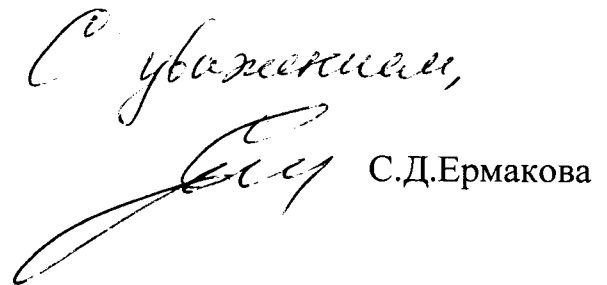 С уважением,
С.Д.Ермакова